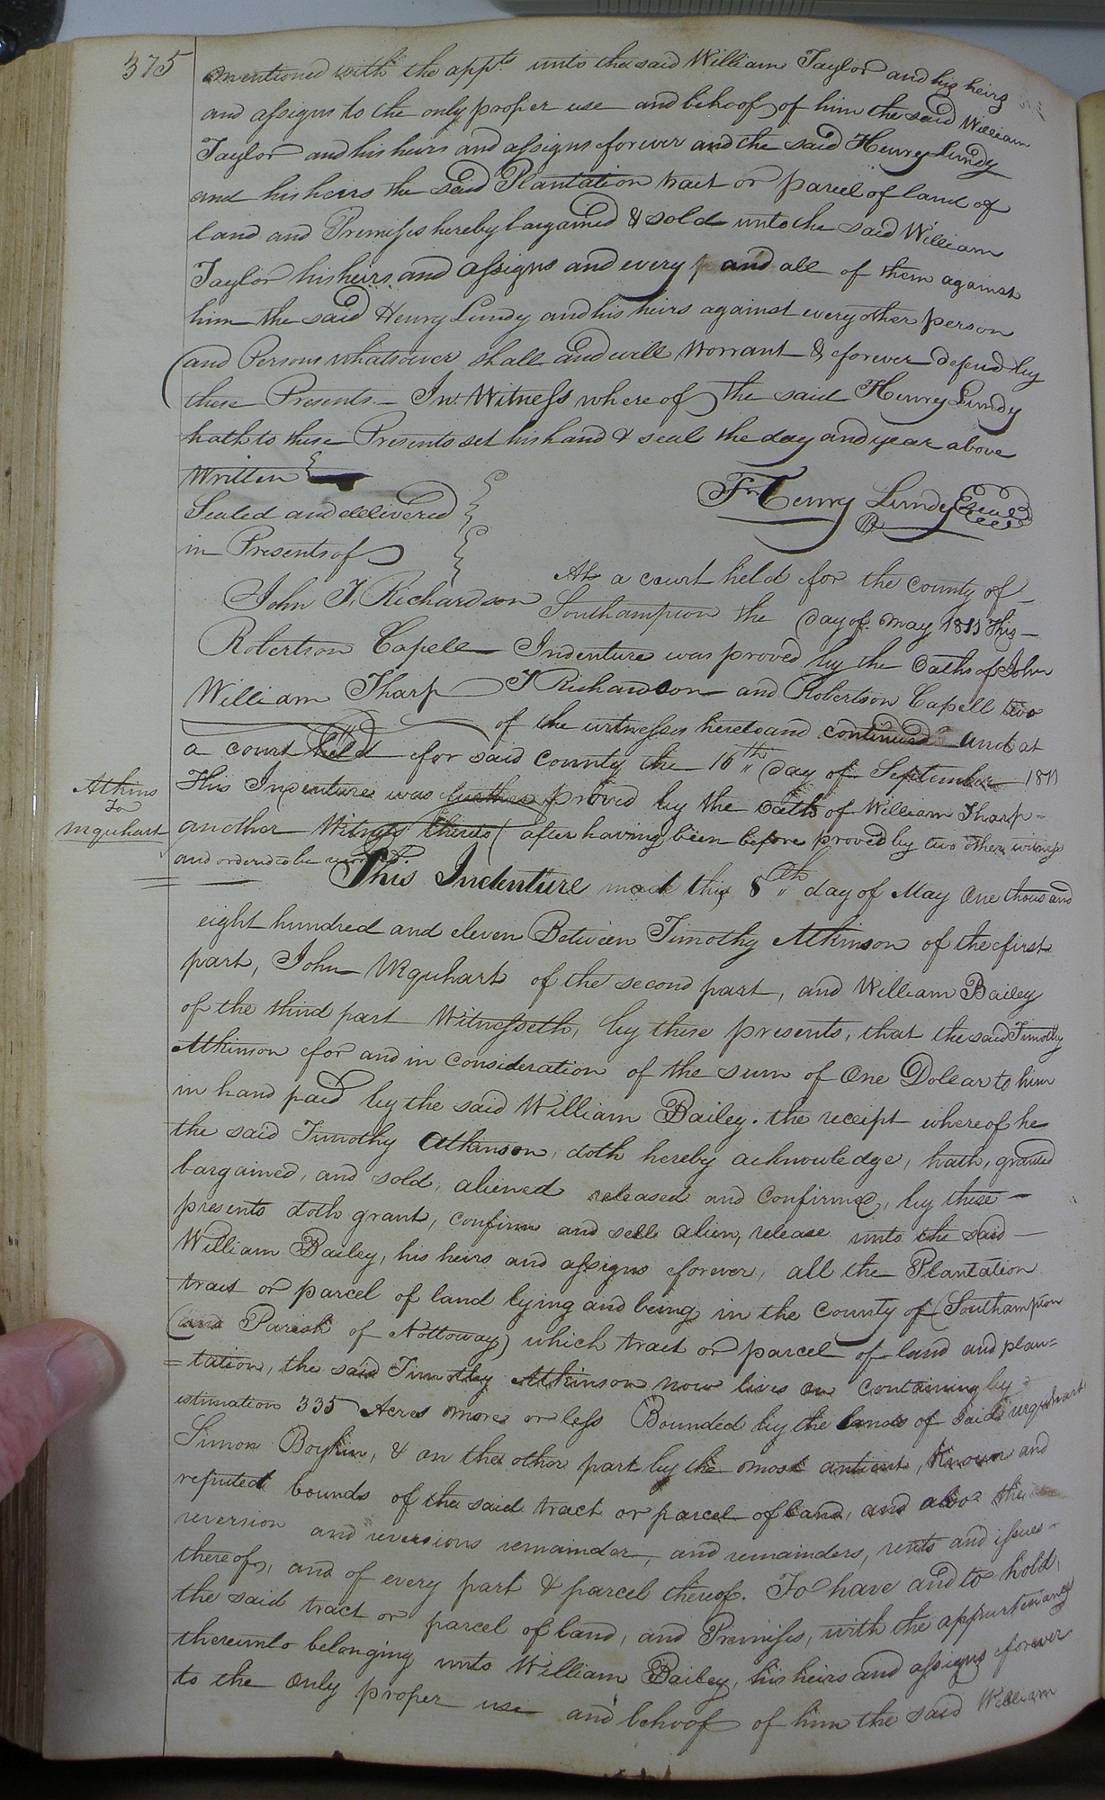 375
mentioned with the appts unto the said William Taylor and his heirs
and assigns to the only proper use and behoof of him the said William
Taylor and his heirs and assigns forever and the said Henry Lundy
and his heirs the said Plantation tract or parcel of land of
land and Premisses hereby bargained & sold unto the said William
Taylor his heirs and assigns and every and all of them against
him the said Henry Lundy and his heirs against every other person
and Persons whatsoever shall and will Warrant & forever defend by
these Presents - In Witness whereof the said Henry Lundy
hath to these Presents set his hand & seal the day and year above
Written
Henry Lundy Seal
Sealed and delivered
in Presents of
John T. Richardson
Robertson Capell
William Tharp
At a court held for the county of
Southampton the day of May 1811 This
Indenture was proved by the Oaths of John
T Richardson and Robertson Capell two
of the witnesses hereto and continued and at
a court held for said county the 16th day of September 1811
This Indenture was further proved by the oath of William Tharp
another Witness thereto (after having been before proved by two other witness
and ordered to be
Atkins
To
Urquhart
This Indenture made this 8th day of May One thousand
eight hundred and eleven Between Timothy Atkinson of the first
part, John Urquhart of the second part, and William Bailey
of the third part Witnesseth, by these presents, that the said Timothy
Atkinson for and in consideration of the sum of One Dollar to him
in hand paid by the said William Bailey. the receipt whereof he
the said Timothy Atkinson, doth hereby acknowledge, hath, granted
bargained, and sold, aliened released and confirmed, by these
presents doth grant, confirm and sell alien, release unto the said
William Bailey, his heirs and assigns forever, all the Plantation
tract or parcel of land lying and being in the County of (Southampton
and Parish of Nottoway) which tract or parcel of land and plan=
=tation, the said Timothy Atkinson now lives on containing by
estimation 335 Acres more or less Bounded by the lands of said Urquhart
Simon Boykin, & on the other part by the most antient, Known and
reputed bounds of the said tract or parcel of land, and also the
reversion and reversions remainder, and remainders, rents and issues
thereof, and of every part & parcel thereof. To have and to hold,
the said tract or parcel of land, and Premises, with the appurtenances
thereunto belonging unto William Bailey, his heirs and assigns forever
to the only proper use and behoof of him the said William